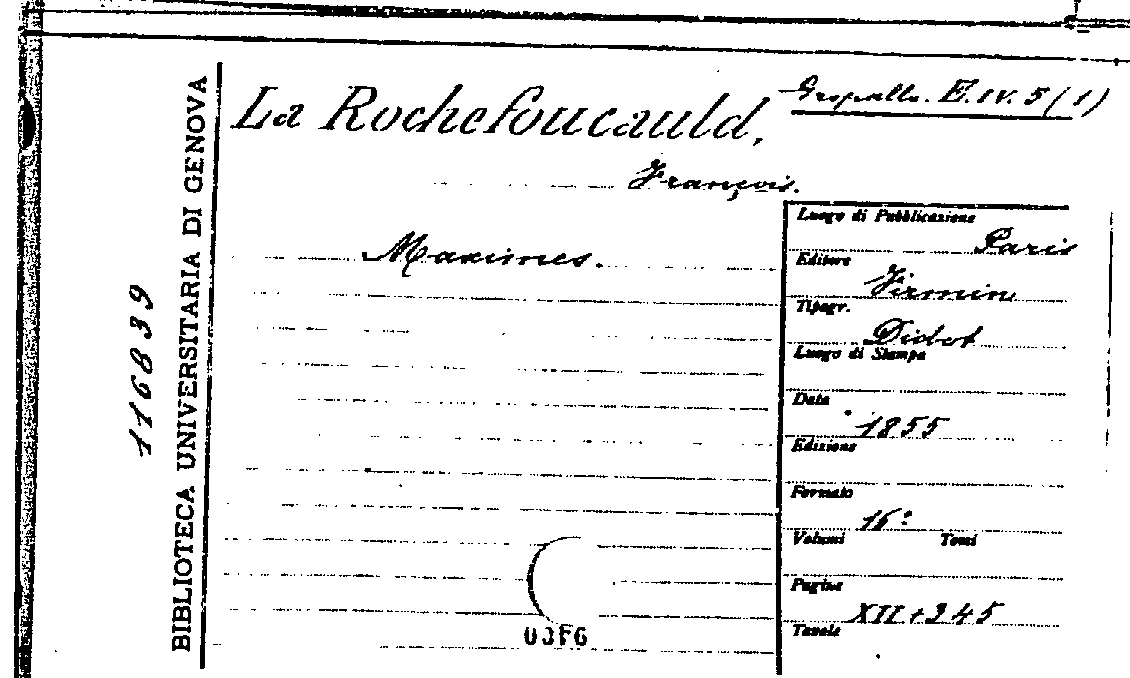 Gropallo. E. IV. 5 (1)
La Rochefoucauld,
François.
Maximes.
Luogo di Pubblicazione
Paris
Editore
Firmin
Tipogr.
Didot
Luogo di Stampa
Data
1855
Edizione
Formato
16º
Volumi Tomi
Pagine
XII+245
Tavole
BIBLIOTECA UNIVERSITARIA DI GENOVA
116839